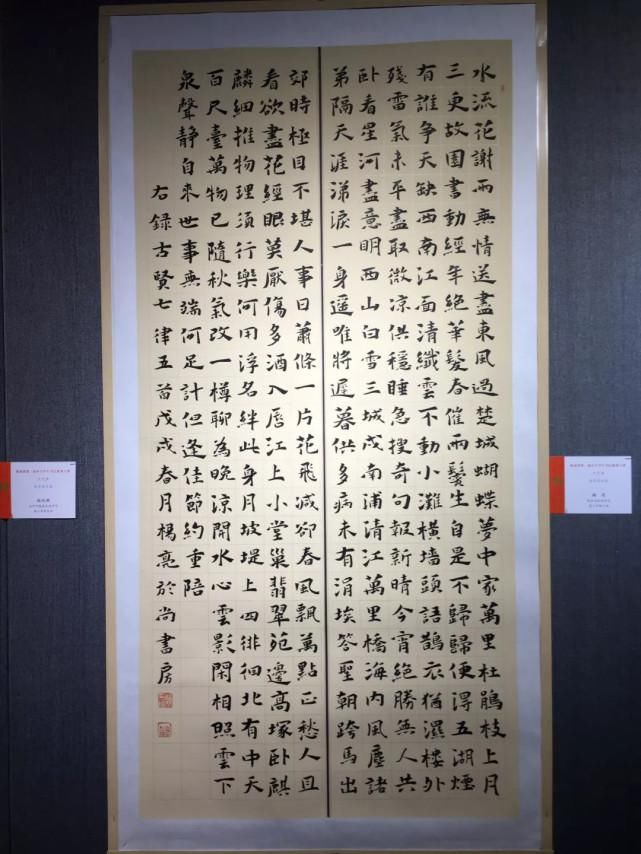 水流花謝兩無情送盡東風過楚城蝴蝶夢中家萬里杜鵑枝上月
三更故園書動經年絕華髮春催兩鬢生自是不歸歸便得五湖煙
有誰争天缺西南江面清纖雲不動小灘橫墙頭語鵲衣猶濕樓外
殘雷氣未平盡取微凉供穩睡急搜奇句報新晴今宵絕勝無人共
卧看星河盡意明西山白雪三城戍南浦清江萬里橋海内風塵諸
弟隔天涯涕淚一身遥唯將遲暮供多病未有涓埃答聖朝跨馬出
郊時極目不堪人事日蕭條一片花飛減卻春風飄萬點正愁人且
看欲盡花經眼莫厭傷多酒入唇江上小堂巢翡翠苑邊高塚卧麒
麟細推物理須行樂何用浮名絆此身月坡堤上四徘徊北有中天
百尺臺萬物已隨秋氣改一樽聊為晚涼開水心雲影閑相照雲下
泉聲静自來世事無端何足計但逢佳節約重陪
右録古賢七律五首戊戌春月楊亮於尚書房